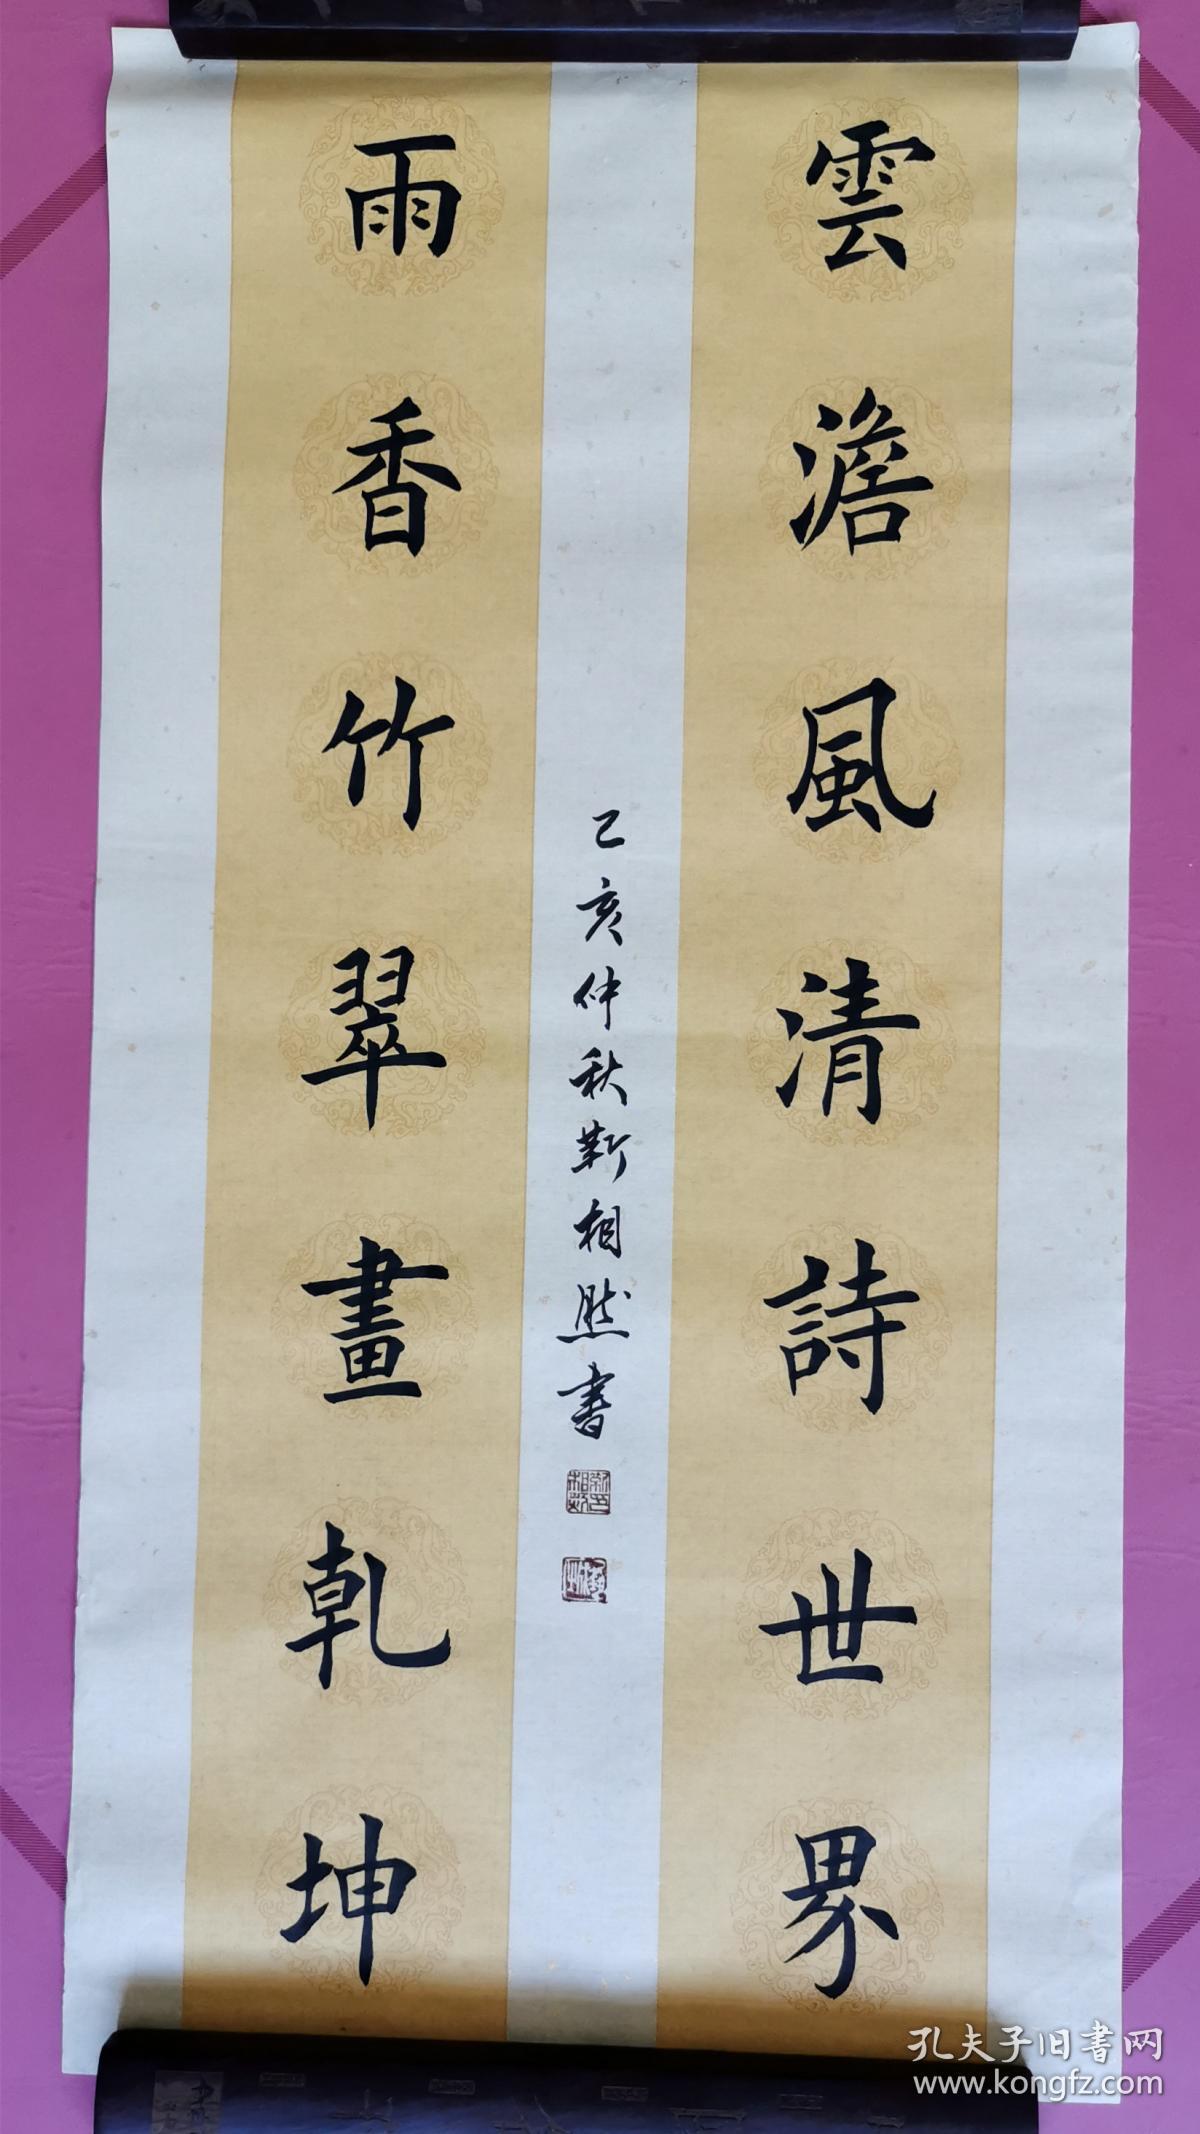 雲澹風清詩世界
雨香竹翠畫乾坤
己亥仲秋靳相然書
孔夫子旧書网
www.kongfz.com